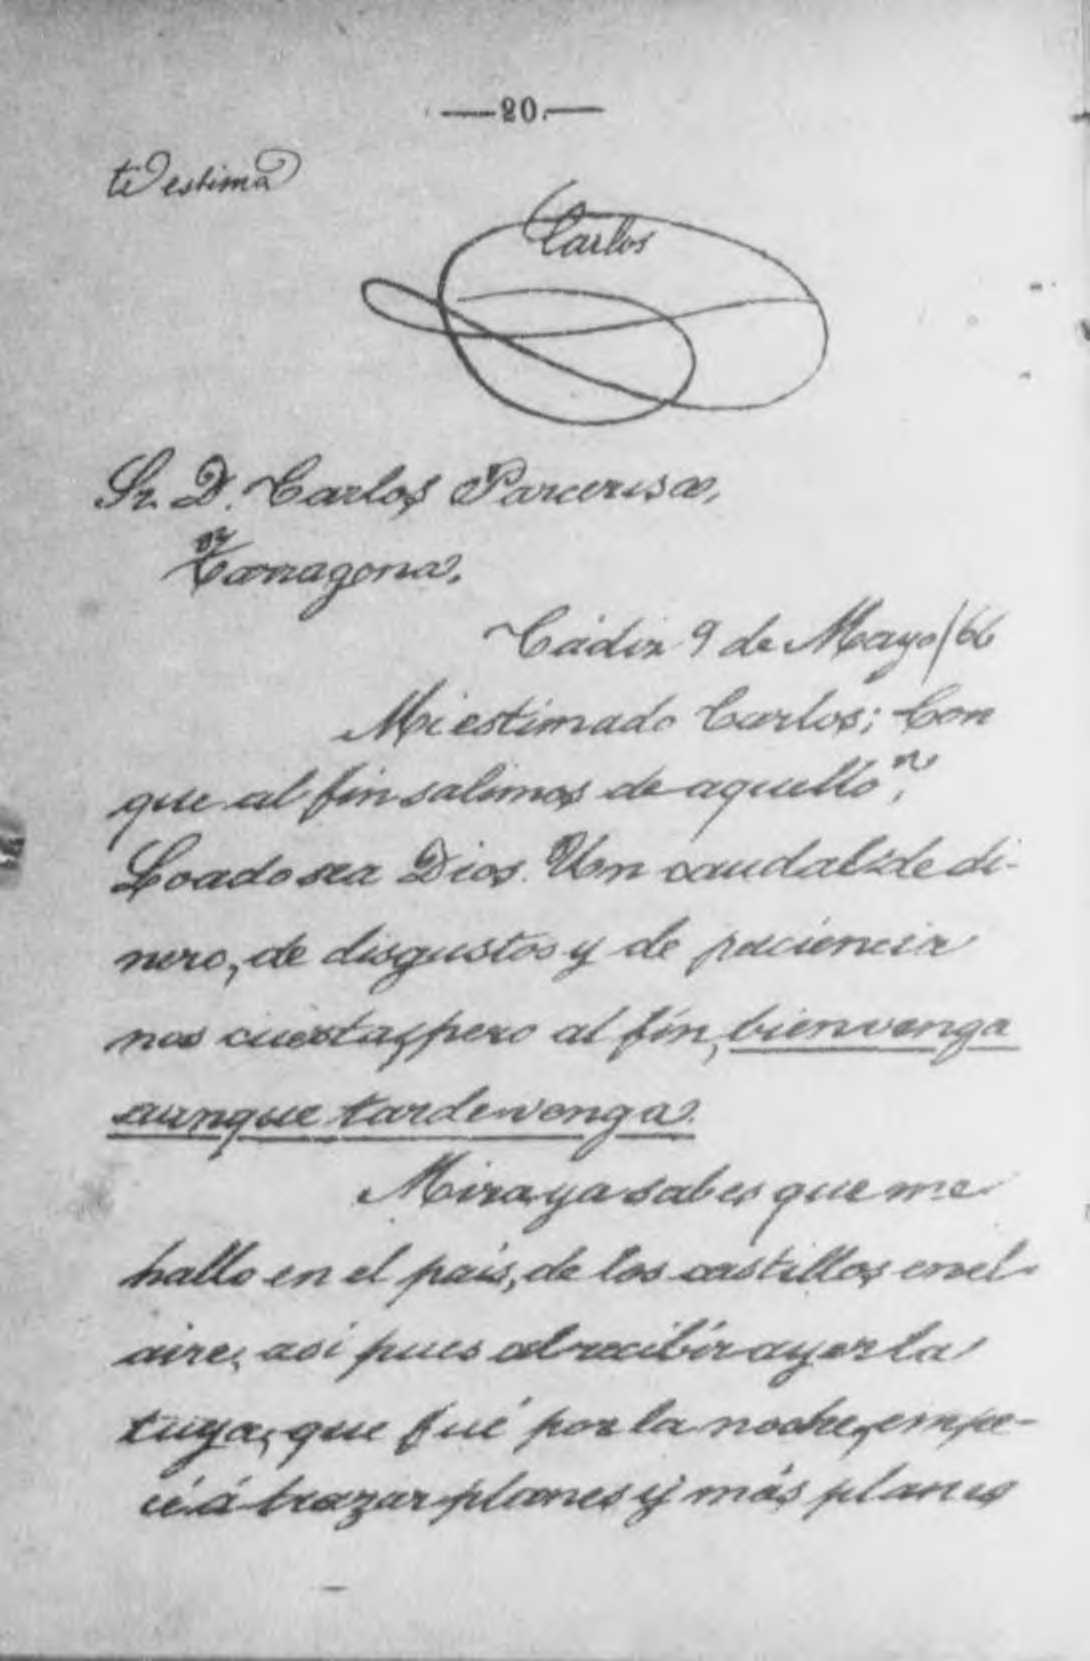 —20.—
te estima
Carlos
Sr. D. Carlos Parcerisa,
Tarragona.
Cádiz 9 de Mayo/66
Mi estimado Carlos; Con
que al fin salimos de aquello?
Loado sea Dios. Un caudal de di-
nero, de disgustos y de paciencia
nos cuesta, pero al fin, bienvenga
aunque tarde venga.
Mira ya sabes que me
hallo en el país, de los castillos en el
aire, asi pues al recibir ayer la
tuya, que fué por la noche, empe-
cé á trazar planes y más planes